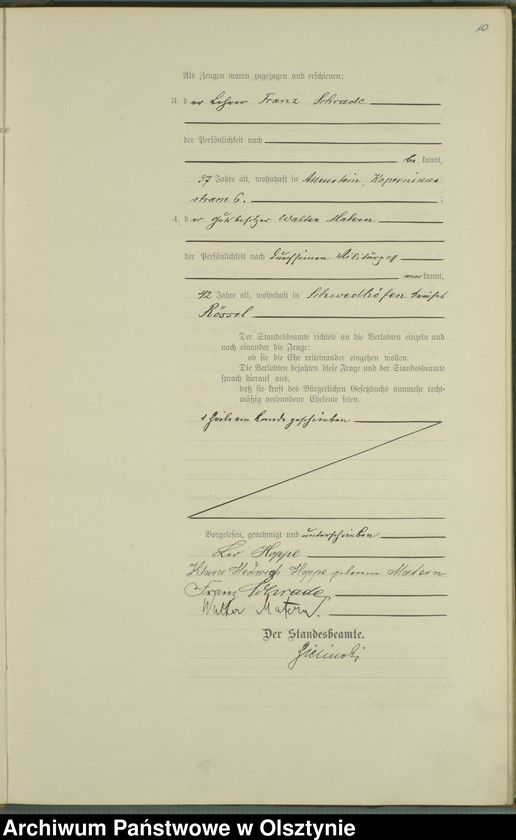 10
Als Zeugen waren zugezogen und erschienen:
3. der Lehrer Franz Schrade
der Persönlichkeit nach
bekannt,
37 Jahre alt, wohnhaft in Allenstein, Kopernikus
strasse 6. ;
4. der Gutsbesitzer Walter Matern
der Persönlichkeit nach durch seinen Militärpaß
anerkannt,
42 Jahre alt, wohnhaft in Kreises
Rössel
Der Standesbeamte richtete an die Verlobten einzeln und
nach einander die Frage:
ob sie die Ehe miteinander eingehen wollen.
Die Verlobten bejahten diese Frage und der Standesbeamte
sprach hierauf aus,
daß sie kraft des Bürgerlichen Gesetzbuchs nunmehr recht-
mäßig verbundene Eheleute seien.
1 Zeile am Rande geschrieben
Vorgelesen, genehmigt und unterschrieben
Leo Hoppe
Klara Hedwig Hoppe geborene Matern
Franz Schrade
Walter Matern.
Der Standesbeamte.
Zielinski
Archiwum Państwowe w Olsztynie